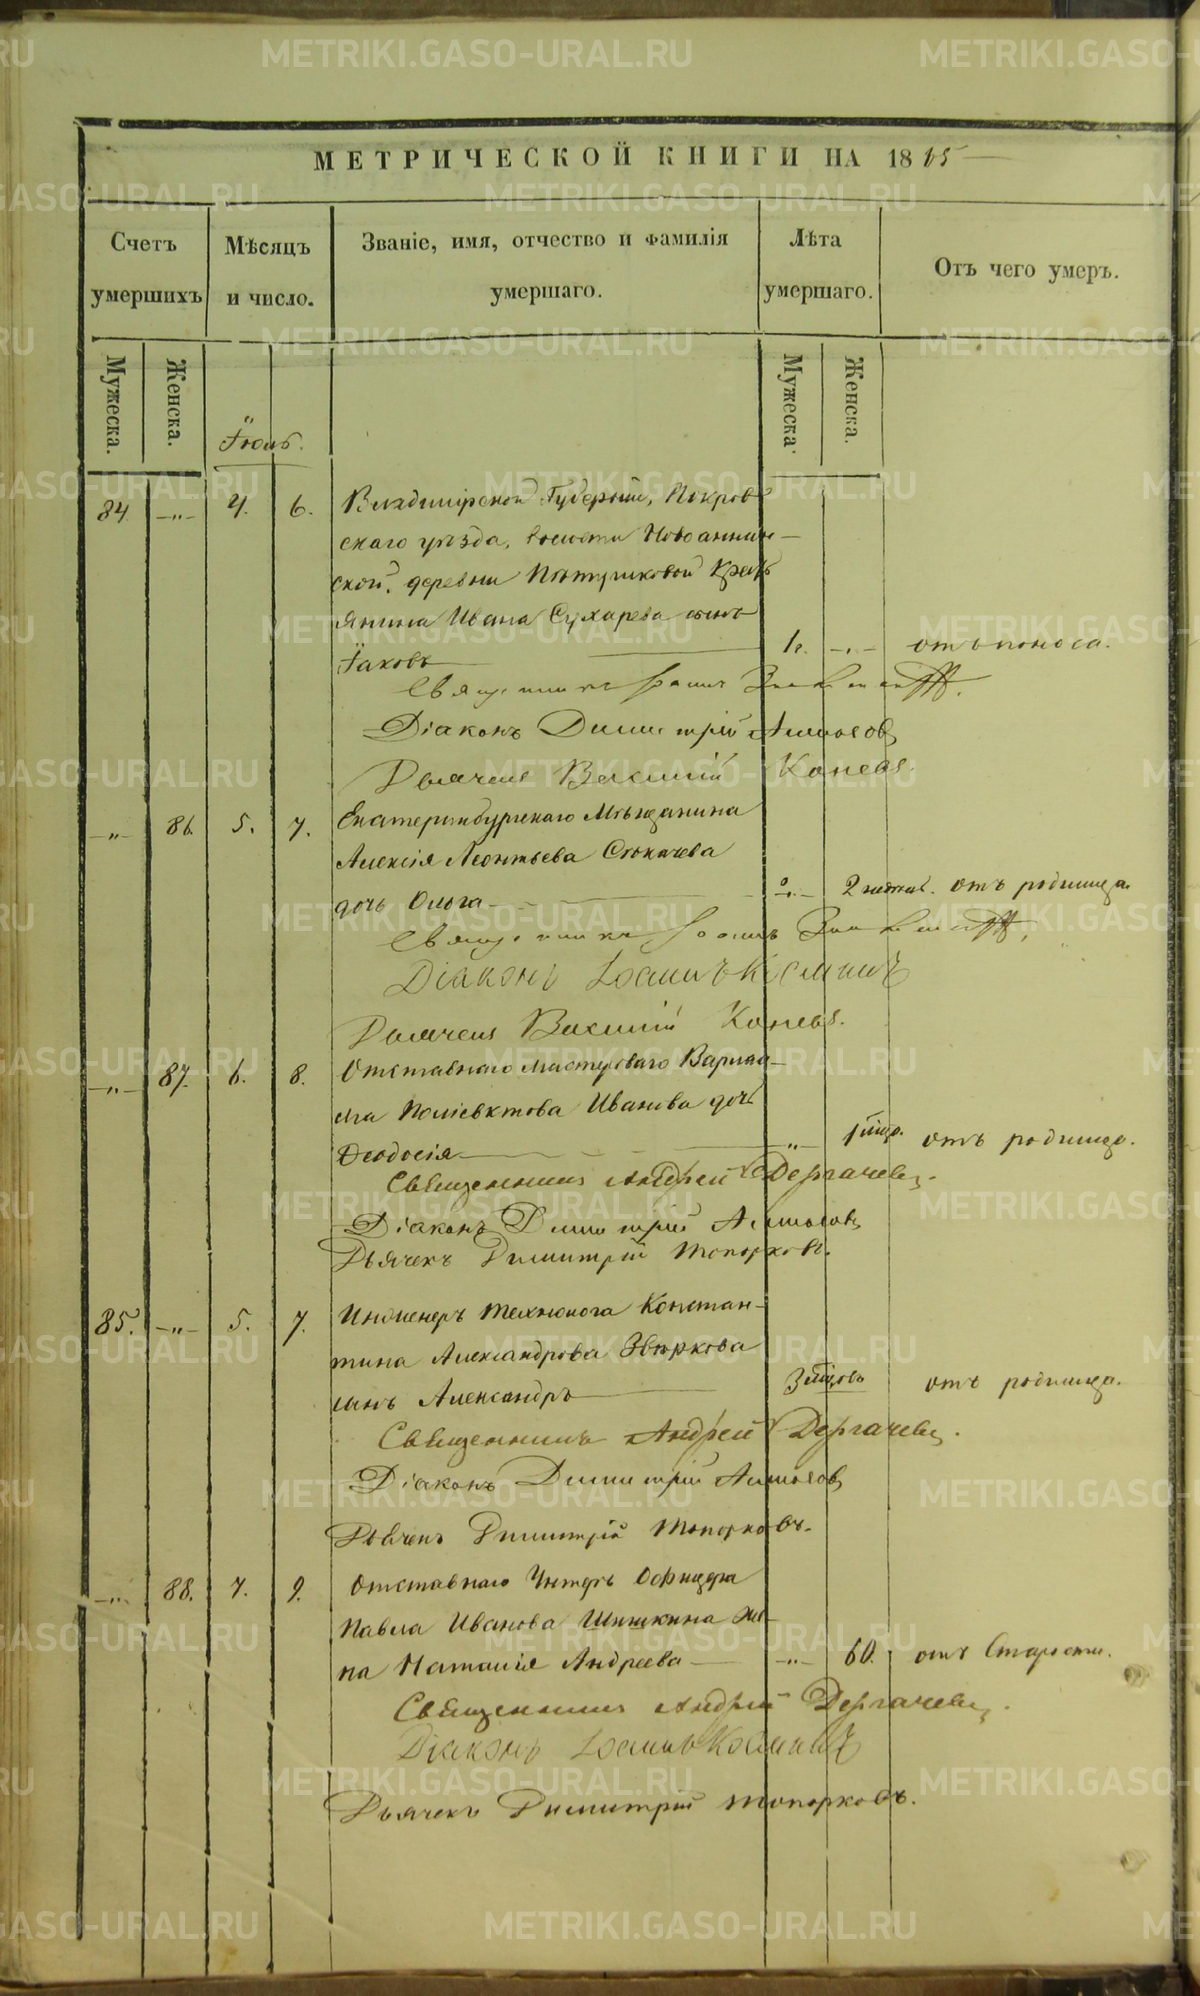 МЕТРИЧЕСКОЙ КНИГИ НА 1865
Счетъ умершихъ
Мѣсяцъ и число.
Званіе, имя, отчество и фамилія умершаго.
Лѣта умершаго.
Отъ чего умеръ.
Мужеска.
Женска.
Мужеска.
Женска.
Іюль.
84 -„- 4. 6. Владимірской Губерніи, Покров
скаго уѣзда, волости Новоаннин-
ской, деревни Крестъ
янина Ивана Сухарева сынъ
Іаковъ 1 г. -„- отъ поноса.
Священникъ Іоаннъ
Діаконъ Димитрій
Дьячекъ Василій Коневъ.
-„- 86. 5. 7. Екатеринбургскаго Мѣщанина
Алексія Леонтьева Стокачева
дочь Ольга -„- 2 недѣл. отъ родимца.
Священникъ Іоаннъ
Діаконъ Іоаннъ Космин
Дьячекъ Василій Коневъ.
-„- 87. 6. 8. Отставнаго мастероваго Варлаа-
ма Поліевктова Иванова дочь
Ѳеодосія -„- 1 мѣс. отъ родимца.
Священникъ Андрей Дергачевъ.
Діаконъ Димитрій
Дьячекъ Димитрій Топорковъ.
85. -„- 5. 7. Инженеръ Технолога Констан-
тина Александрова Звѣркова
сынъ Александръ 3 мѣсцовъ отъ родимца.
Священникъ Андрей Дергачевъ.
Діаконъ Димитрій
Дьячекъ Димитрій Топорковъ.
-„- 88. 7. 9. Отставнаго Унтеръ Офицера
Павла Иванова Шишкина же-
на Наталія Андреева -„- 60. отъ Старости.
Священникъ Андрей Дергачевъ.
Діаконъ Іоаннъ Космин
Дьячекъ Димитрій Топорковъ.
METRIKI.GASO-URAL.RU